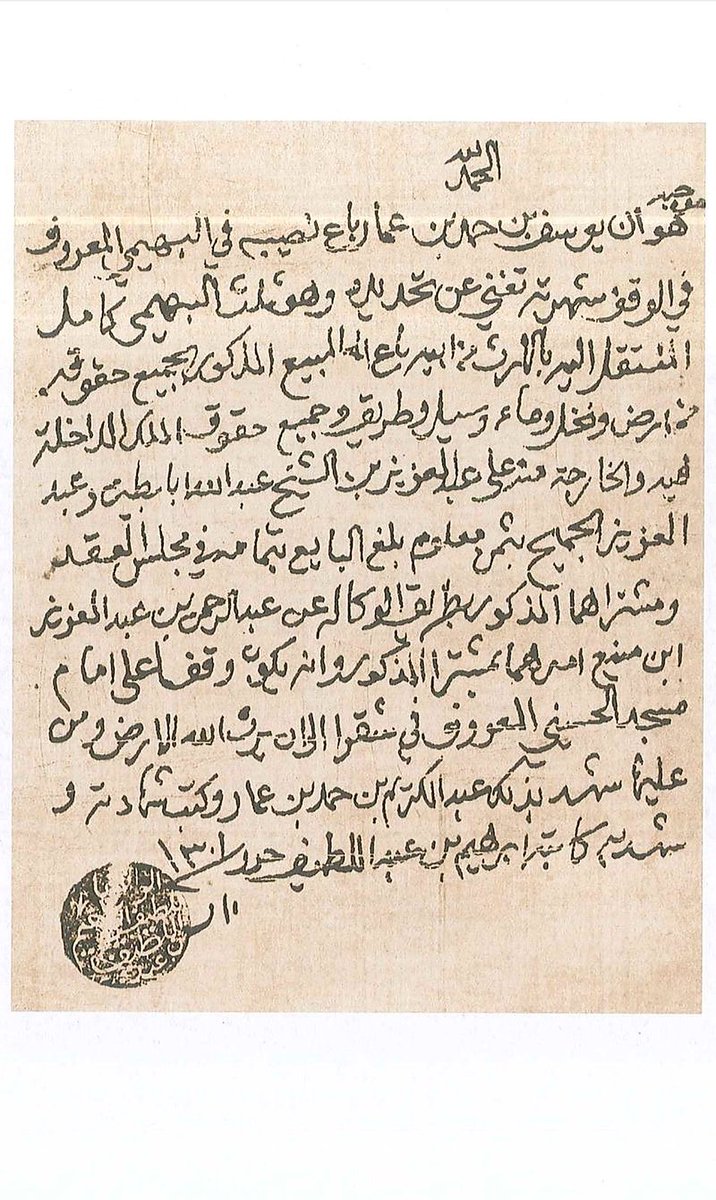 الحمد لله
موجبه
هو أن يوسف بن حمد بن عمار باع نصيبه في البهيمي المعروف
في الوقف شهرته تغني عن تحديده وهو ثلث البهيمي كامل
المنتقل اليه بالارث من ابيه باع المبيع المذكور بجميع حقوقه
من ارض ونخل وماء وسيل وطريق وجميع حقوق الملك الداخلة
فيه والخارجة منه على عبد العزيز بن الشيخ عبد الله ابا بطين وعبد
العزيز الجميح بثمن معلوم بلغ البايع بتمامه في مجلس العقد
ومشتراهما المذكور بطريق الوكاله عن عبد الرحمن بن عبد العزيز
ابن منيع امرهما بمشترا المذكور وانه يكون وقفا على امام
مسجد الحسيني المعروف في شقرا الى ان يرث الله الارض ومن
عليها شهد بذلك عبد الكريم بن حمد بن عمار وكتب شهادته و
شهد به كاتبه ابرهيم بن عبد اللطيف حرر ١٣٠١